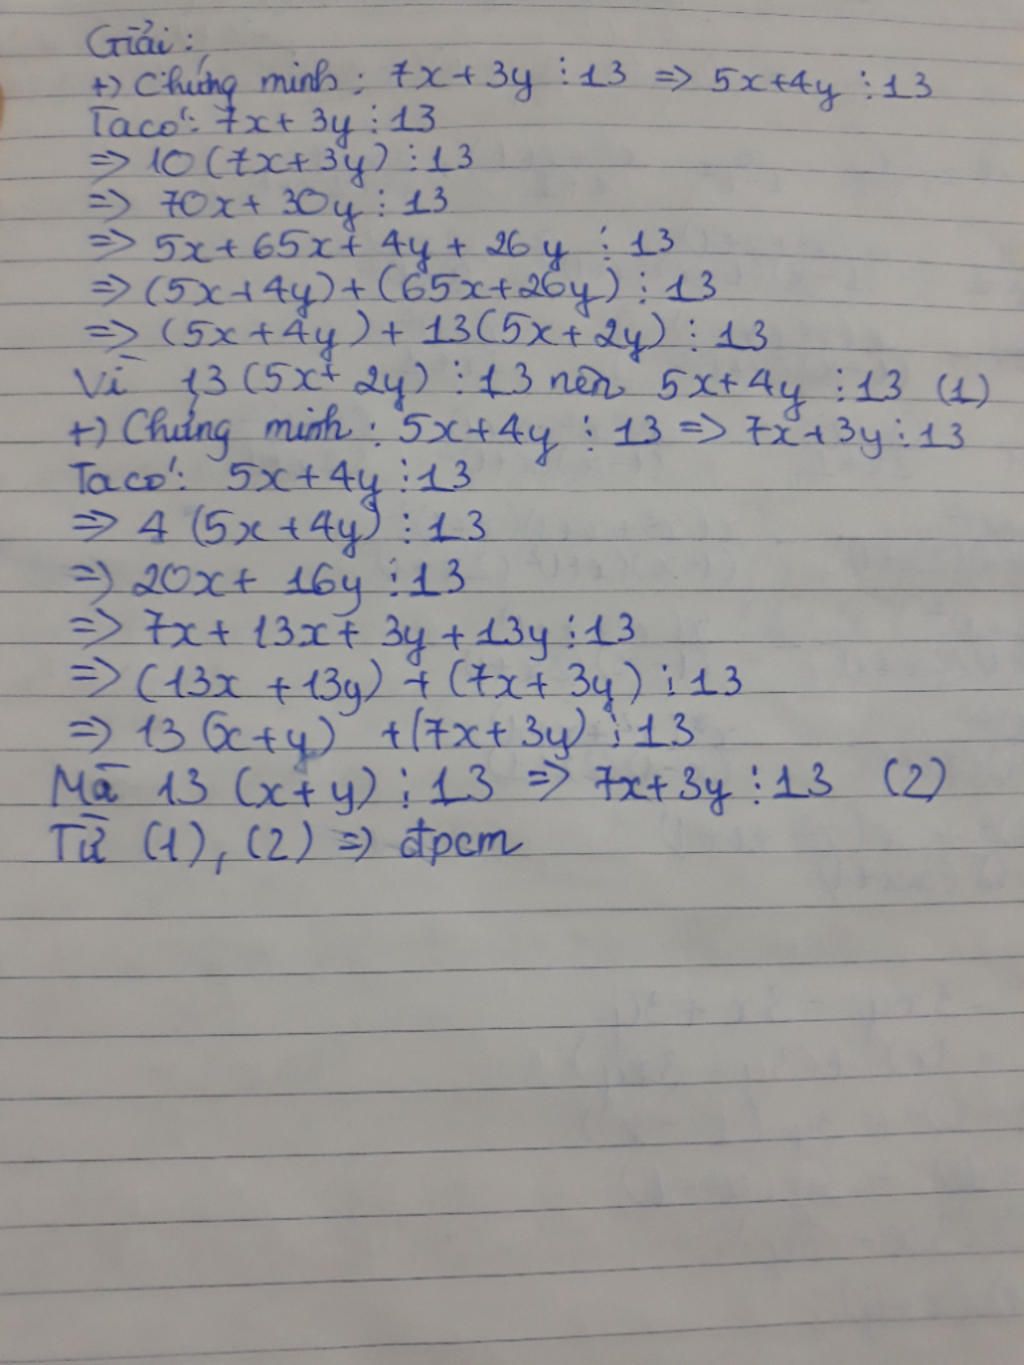 Giải:
+) Chứng minh: 7x+3y ⋮ 13 => 5x+4y ⋮ 13
Ta có: 7x+3y ⋮ 13
=> 10(7x+3y) ⋮ 13
=> 70x+30y ⋮ 13
=> 5x+65x+4y+26y ⋮ 13
=> (5x+4y)+(65x+26y) ⋮ 13
=> (5x+4y)+13(5x+2y) ⋮ 13
Vì 13(5x+2y) ⋮ 13 nên 5x+4y ⋮ 13 (1)
+) Chứng minh: 5x+4y ⋮ 13 => 7x+3y ⋮ 13
Ta có: 5x+4y ⋮ 13
=> 4(5x+4y) ⋮ 13
=> 20x+16y ⋮ 13
=> 7x+13x+3y+13y ⋮ 13
=> (13x+13y)+(7x+3y) ⋮ 13
=> 13(x+y) +(7x+3y) ⋮ 13
Mà 13(x+y) ⋮ 13 => 7x+3y ⋮ 13 (2)
Từ (1), (2) => đpcm